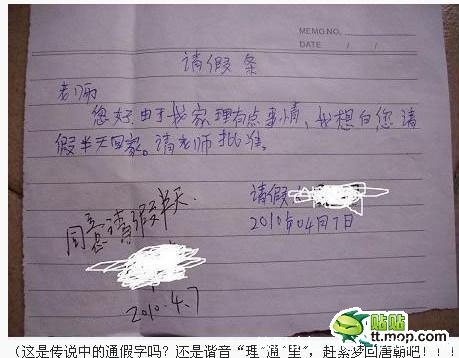 MEMO NO.
DATE / /
请假条
老师
您好,由于我家理有点事情,我想向您请
假半天回家。请老师批准。
请假
2010年04月7日
同意请假半天.
2010.4.7
贴贴
tt.mop.com
(这是传说中的通假字吗?还是谐音“理”通“里”,赶紧梦回唐朝吧!!!